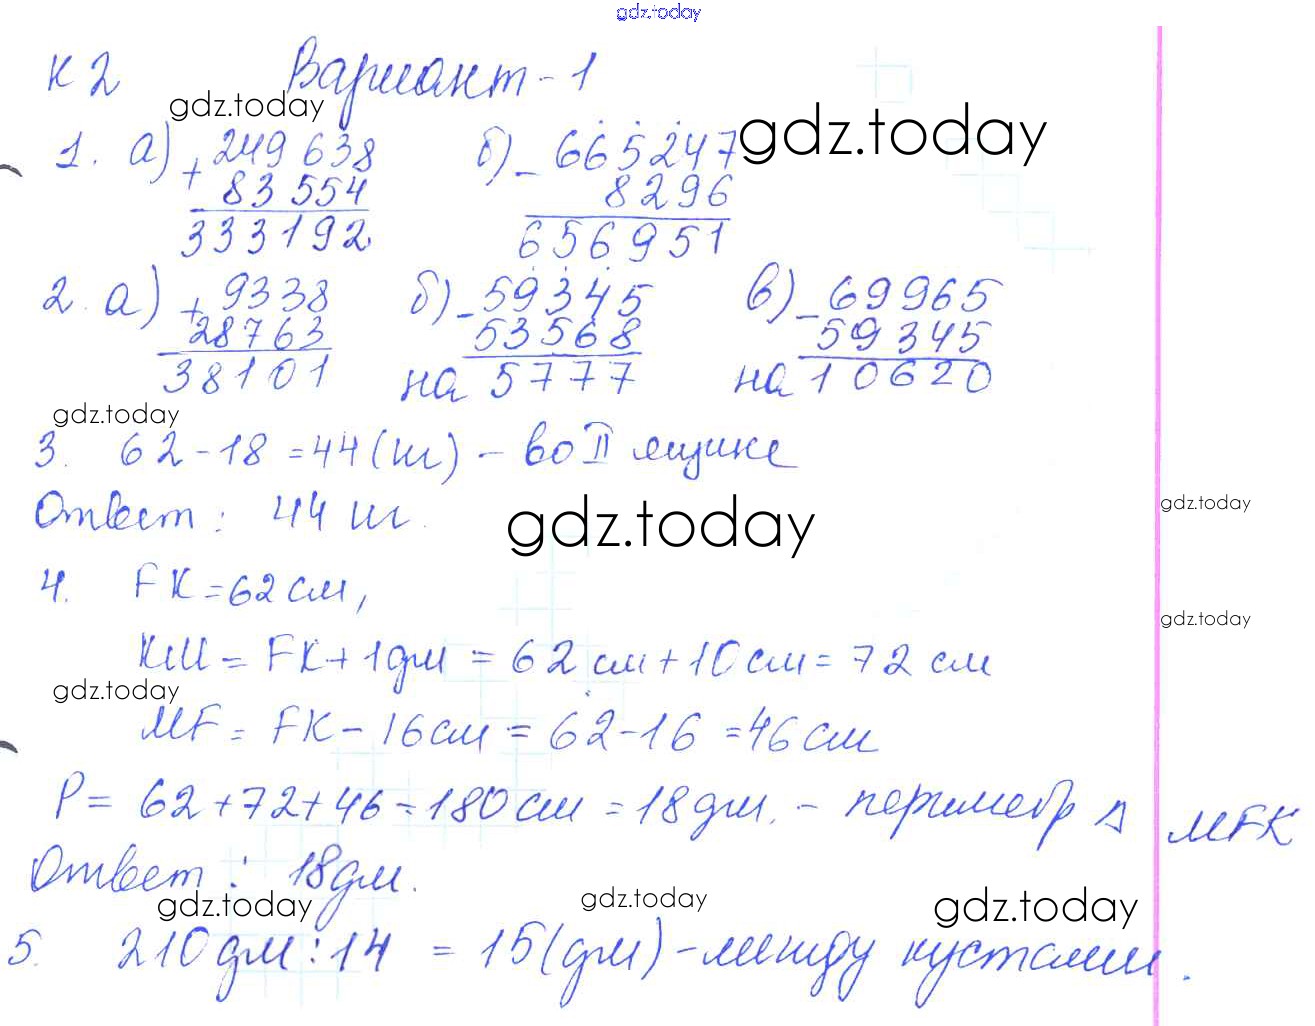 gdz.today
К 2 Вариант - 1
gdz.today gdz.today
1. а) + 249 638 б) - 665247
83 554 8296
333192 656951
2. а) + 9338 б) - 59345 в) - 69965
28763 53568 59345
38101 на 5777 на 10620
gdz.today
3. 62 - 18 = 44 (ш) - во II ящике
Ответ: 44 ш.
gdz.today gdz.today
4. FK = 62 см,
gdz.today
КМ = FK + 1 дм = 62 см + 10 см = 72 см
gdz.today
MF = FK - 16 см = 62 - 16 = 46 см
P = 62 + 72 + 46 = 180 см = 18 дм. - периметр Δ MFK
Ответ: 18 дм.
gdz.today gdz.today gdz.today
5. 210 дм : 14 = 15 (дм) - между кустами.